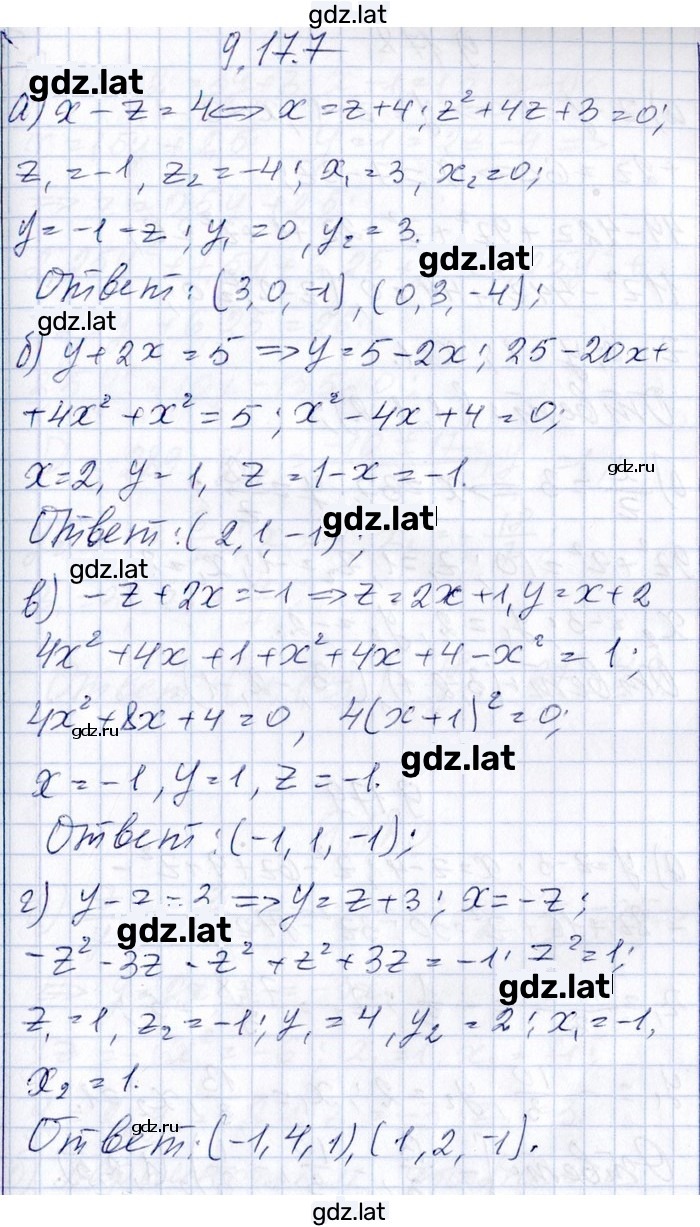 gdz.lat
9.17.7
gdz.lat
а) x - z = 4 <=> x = z + 4; z² + 4z + 3 = 0;
z₁ = -1, z₂ = -4; x₁ = 3, x₂ = 0;
y = -1 - z; y₁ = 0, y₂ = 3.
gdz.lat
Ответ: (3, 0, -1), (0, 3, -4);
gdz.lat
б) y + 2x = 5 => y = 5 - 2x; 25 - 20x +
+ 4x² + x² = 5; x² - 4x + 4 = 0;
x = 2, y = 1, z = 1 - x = -1.
gdz.ru
Ответ: (2, 1, -1);
gdz.lat
gdz.lat
в) -z + 2x = -1 => z = 2x + 1, y = x + 2
4x² + 4x + 1 + x² + 4x + 4 - x² = 1;
4x² + 8x + 4 = 0, 4(x + 1)² = 0;
gdz.ru
x = -1, y = 1, z = -1.
gdz.lat
Ответ: (-1, 1, -1);
г) y - z = 2 => y = z + 3; x = -z;
gdz.lat
-z² - 3z - z² + z² + 3z = -1; z² = 1;
gdz.lat
z₁ = 1, z₂ = -1; y₁ = 4, y₂ = 2; x₁ = -1,
x₂ = 1.
gdz.ru
Ответ: (-1, 4, 1), (1, 2, -1).
gdz.lat